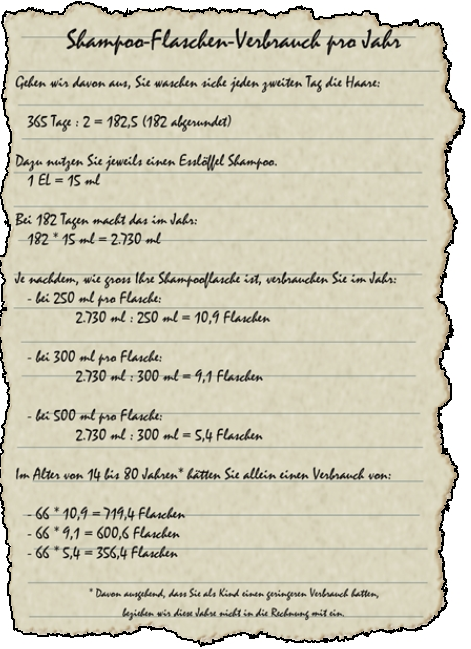 Shampoo-Flaschen-Verbrauch pro Jahr
Gehen wir davon aus, Sie waschen siche jeden zweiten Tag die Haare:
365 Tage : 2 = 182,5 (182 abgerundet)
Dazu nutzen Sie jeweils einen Esslöffel Shampoo.
1 EL = 15 ml
Bei 182 Tagen macht das im Jahr:
182 * 15 ml = 2.730 ml
Je nachdem, wie gross Ihre Shampooflasche ist, verbrauchen Sie im Jahr:
- bei 250 ml pro Flasche:
2.730 ml : 250 ml = 10,9 Flaschen
- bei 300 ml pro Flasche:
2.730 ml : 300 ml = 9,1 Flaschen
- bei 500 ml pro Flasche:
2.730 ml : 300 ml = 5,4 Flaschen
Im Alter von 14 bis 80 Jahren* hätten Sie allein einen Verbrauch von:
- 66 * 10,9 = 719,4 Flaschen
- 66 * 9,1 = 600,6 Flaschen
- 66 * 5,4 = 356,4 Flaschen
* Davon ausgehend, dass Sie als Kind einen geringeren Verbrauch hatten,
beziehen wir diese Jahre nicht in die Rechnung mit ein.